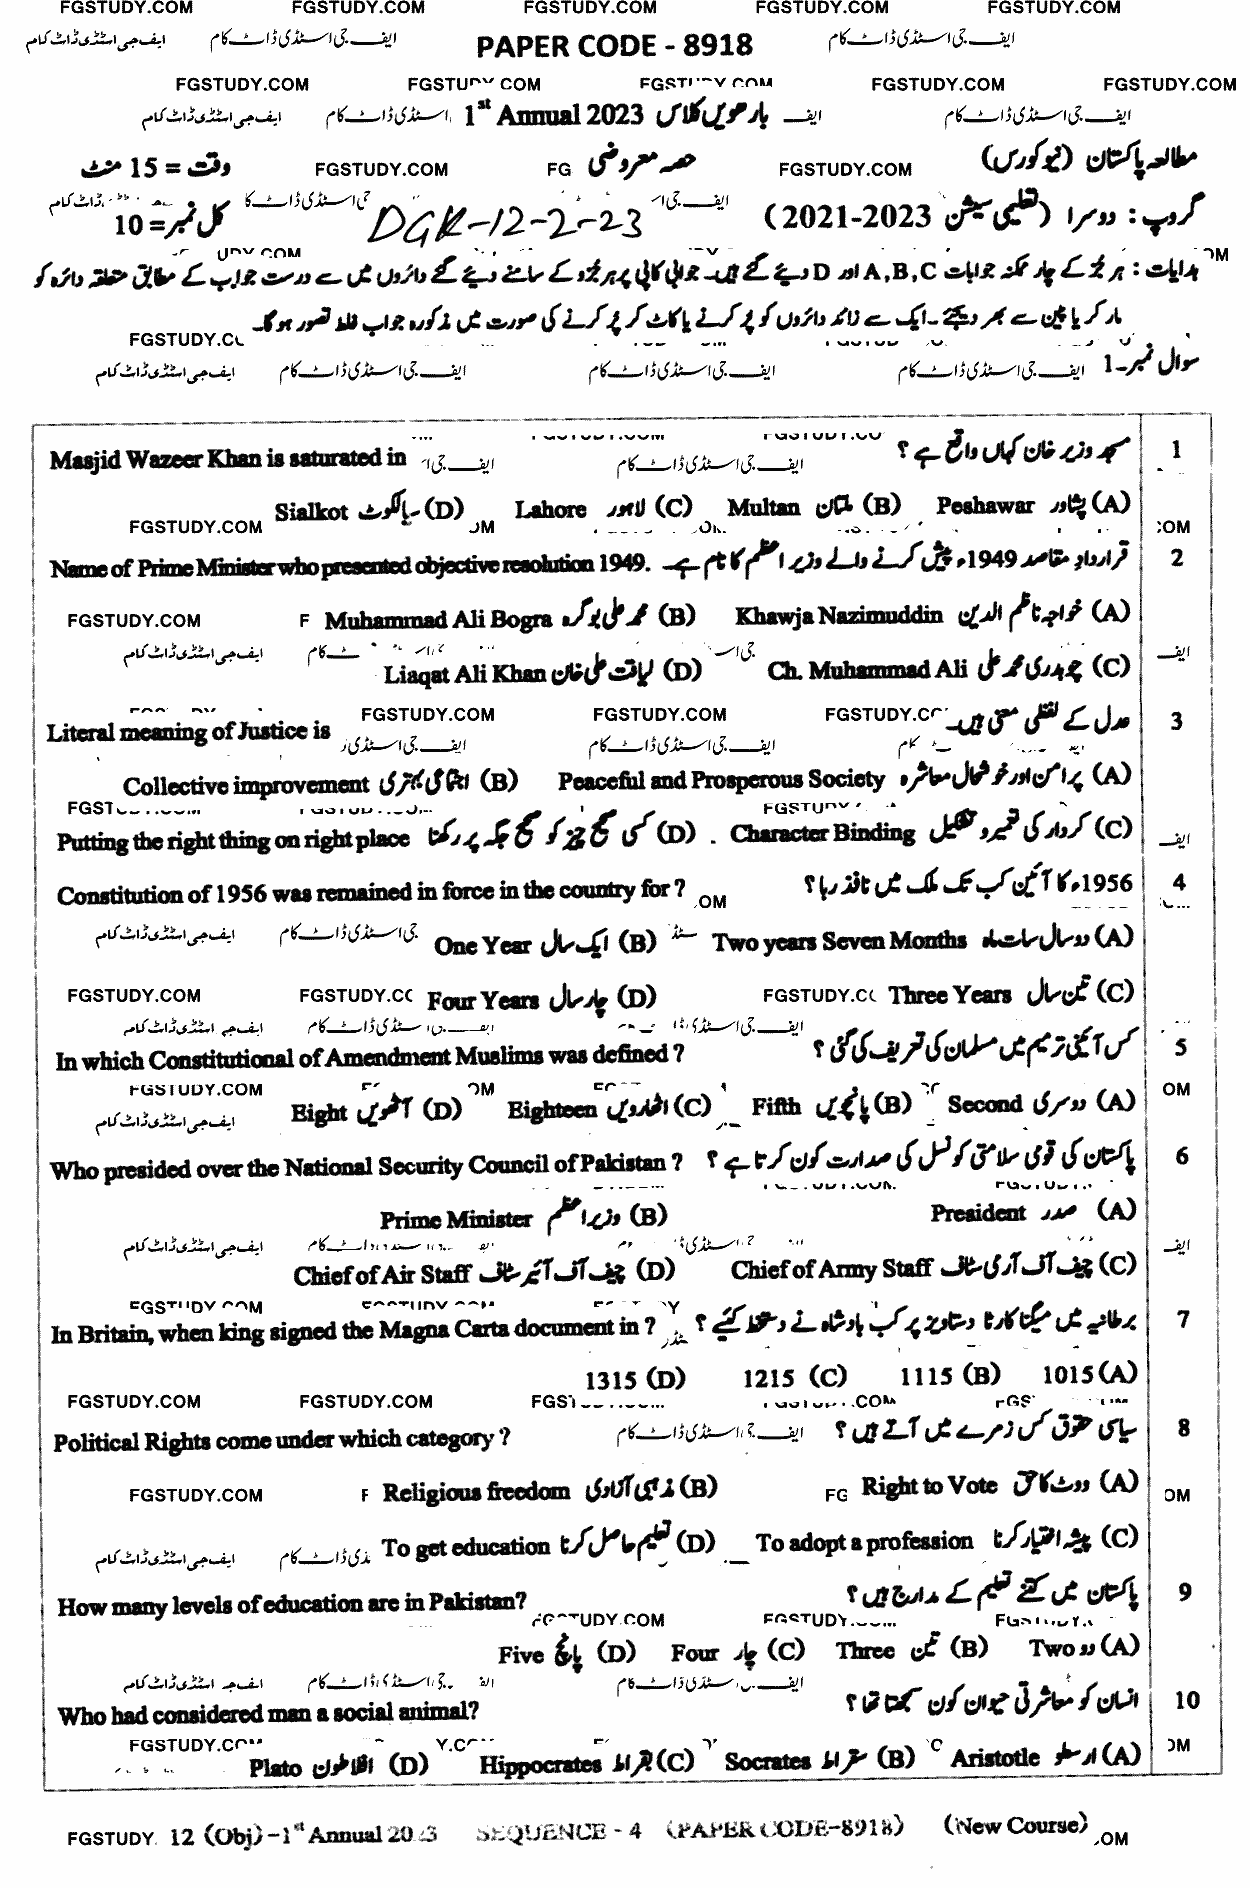 FGSTUDY.COM FGSTUDY.COM FGSTUDY.COM FGSTUDY.COM FGSTUDY.COM
ایف جی اسٹڈی ڈاٹ کام PAPER CODE - 8918
FGSTUDY.COM FGSTUDY.COM FGSTUDY.COM FGSTUDY.COM FGSTUDY.COM
بارھویں کلاس 1st Annual 2023
مطالعہ پاکستان (نیو کورس) حصہ معروضی وقت = 15 منٹ
FGSTUDY.COM FG FGSTUDY.COM
گروپ : دوسرا (تعلیمی سیشن 2021-2023) DGK-12-2-23 کل نمبر = 10
ہدایات : ہر جُز کے چار ممکنہ جوابات A,B,C اور D دیئے گئے ہیں۔ جوابی کاپی پر ہر جُز کے سامنے دیئے گئے دائروں میں سے درست جواب کے مطابق متعلقہ دائرہ کو
مارکر یا پین سے بھر دیجئے ۔ ایک سے زائد دائروں کو پُر کرنے یا کاٹ کر پُر کرنے کی صورت میں مذکورہ جواب غلط تصور ہوگا۔
سوال نمبر۔1
1 مسجد وزیر خان کہاں واقع ہے ؟ Masjid Wazeer Khan is saturated in
(A) پشاور Peshawar (B) ملتان Multan (C) لاہور Lahore (D) سیالکوٹ Sialkot
2 قراردادِ مقاصد 1949ء پیش کرنے والے وزیراعظم کا نام ہے۔ Name of Prime Minister who presented objective resolution 1949.
(A) خواجہ ناظم الدین Khawja Nazimuddin (B) محمد علی بوگرہ Muhammad Ali Bogra
(C) چوہدری محمد علی Ch. Muhammad Ali (D) لیاقت علی خان Liaqat Ali Khan
3 عدل کے لفظی معنی ہیں۔ Literal meaning of Justice is
(A) پرامن اور خوشحال معاشرہ Peaceful and Prosperous Society (B) اجتماعی بہتری Collective improvement
(C) کردار کی تعمیر و تشکیل Character Binding (D) کسی صحیح چیز کو صحیح جگہ پر رکھنا Putting the right thing on right place
4 1956ء کا آئین کب تک ملک میں نافذ رہا ؟ Constitution of 1956 was remained in force in the country for ?
(A) دو سال سات ماہ Two years Seven Months (B) ایک سال One Year
(C) تین سال Three Years (D) چار سال Four Years
5 کس آئینی ترمیم میں مسلمان کی تعریف کی گئی ؟ In which Constitutional of Amendment Muslims was defined ?
(A) دوسری Second (B) پانچویں Fifth (C) اٹھارویں Eighteen (D) آٹھویں Eight
6 پاکستان کی قومی سلامتی کونسل کی صدارت کون کرتا ہے ؟ Who presided over the National Security Council of Pakistan ?
(A) صدر President (B) وزیراعظم Prime Minister
(C) چیف آف آرمی سٹاف Chief of Army Staff (D) چیف آف ائیر سٹاف Chief of Air Staff
7 برطانیہ میں میگنا کارٹا دستاویز پر کب بادشاہ نے دستخط کئے ؟ In Britain, when king signed the Magna Carta document in ?
(A) 1015 (B) 1115 (C) 1215 (D) 1315
8 سیاسی حقوق کس زمرے میں آتے ہیں ؟ Political Rights come under which category ?
(A) ووٹ کا حق Right to Vote (B) مذہبی آزادی Religious freedom
(C) پیشہ اختیار کرنا To adopt a profession (D) تعلیم حاصل کرنا To get education
9 پاکستان میں کتنے تعلیم کے مدارج ہیں ؟ How many levels of education are in Pakistan?
(A) دو Two (B) تین Three (C) چار Four (D) پانچ Five
10 انسان کو معاشرتی حیوان کون سمجھتا تھا ؟ Who had considered man a social animal?
(A) ارسطو Aristotle (B) سقراط Socrates (C) بقراط Hippocrates (D) افلاطون Plato
FGSTUDY. 12 (Obj)-1st Annual 2023 SEQUENCE - 4 (PAPER CODE-8918) (New Course)